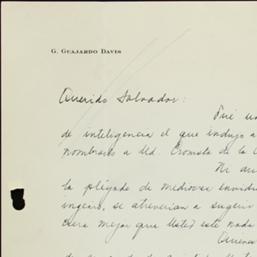 G. Guajardo Davis
Querido Salvador:
Fué un
de inteligencia el que indujo a
nombrarlo a Ud. Cronista de la C
Ni au
la pléyade de mediocres envidio
se atreverían a sugerir
mejor que Usted este nada
Quienes